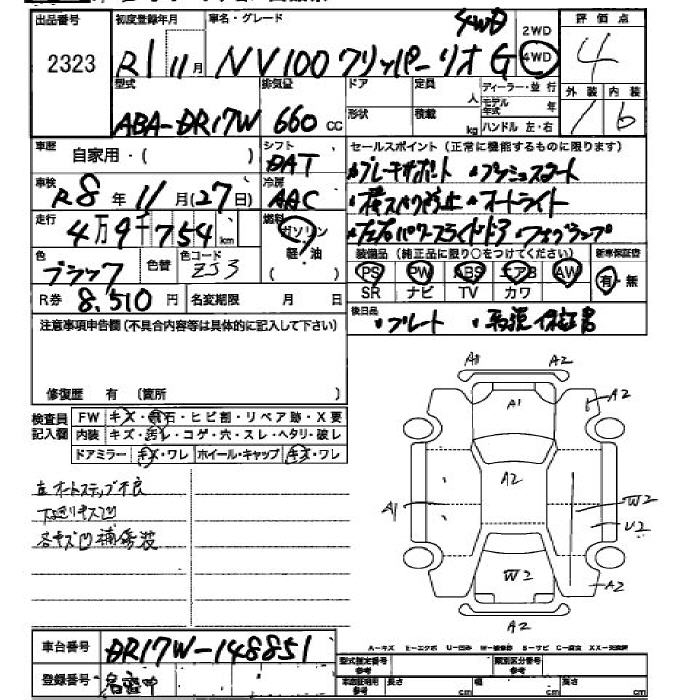 出品番号 初度登録年月 車名・グレード 評価点
2323 R1 11月 NV100 クリッパーリオ G 4WD 2WD 4WD 4
型式 排気量 ドア 定員 人 ディーラー・並行 外装 内装
ABA-DR17W 660 cc 形状 積載 kg モデル年式 年 ハンドル 左・右 1 b
車歴 自家用・( ) シフト DAT セールスポイント(正常に機能するものに限ります)
車検 R8年11月(27日) 冷房 AAC ・ブレーキサポート ・プッシュスタート
・オートライト
走行 4万9千754km 燃料 ガソリン 軽・油 ( )
色 ブラック 色替 色コード ZJ3 装備品(純正品に限り○をつけてください) 新車保証書
PS PW ABS エアB AW 有・無
SR ナビ TV カワ
R券 8,510円 名変期限 月 日
後日品 ・プレート ・ 保証書
注意事項申告欄(不具合内容等は具体的に記入して下さい)
修復歴 有 (箇所 )
検査員記入欄 FW キズ・飛石・ヒビ割・リペア跡・X要
内装 キズ・汚レ・コゲ・穴・スレ・ヘタリ・破レ
ドアミラー キズ・ワレ ホイール・キャップ キズ・ワレ
左オートステップ不良
下廻りキズ凹
各キズ凹補修
A1 A2
A1 A2
A2
A1 W2
U2
W2 A2
A2
A-キズ E-エクボ U-凹み
車台番号 DR17W-148851
型式指定番号 参考 類別区分番号 参考
登録番号 長さ cm 幅 cm 高さ cm